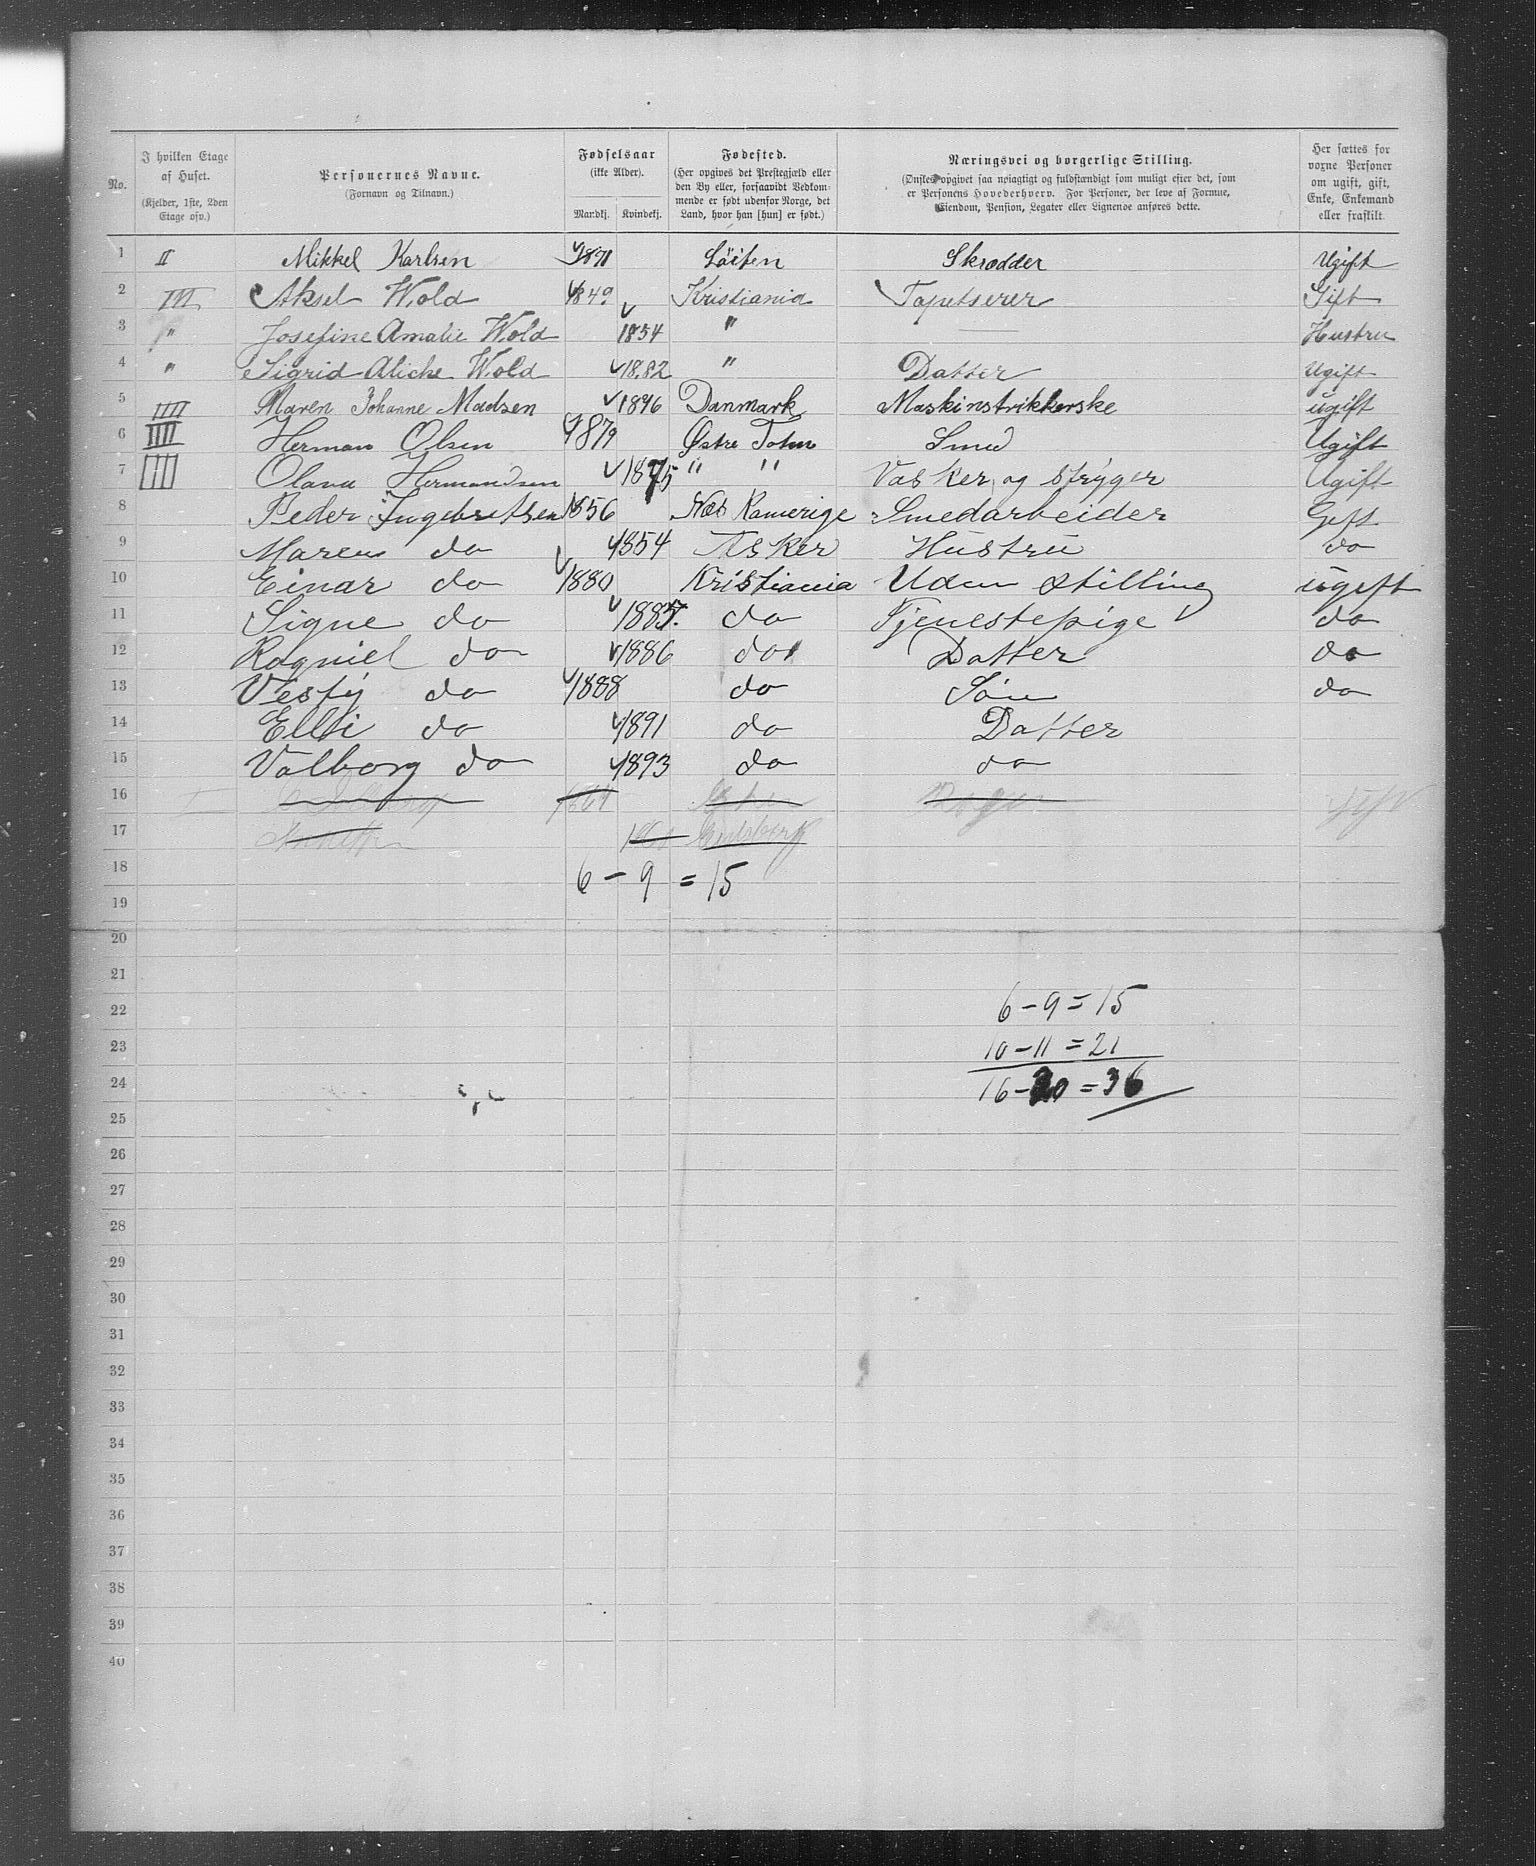 No. | I hvilken Etage af Huset. (Kjelder, 1ste, 2den Etage osv.) | Personernes Navne. (Fornavn og Tilnavn.) | Fødselsaar (ikke Alder). Mandkj. Kvindekj. | Fødested. (Her opgives det Prestegjæld eller den By eller, forsaavidt Vedkommende er født udenfor Norge, det Land, hvor han [hun] er født.) | Næringsvei og borgerlige Stilling. (Ønskes opgivet saa nøiagtigt og fuldstændigt som muligt efter det, som er Personens Hovederhverv. For Personer, der leve af Formue, Eiendom, Pension, Legater eller Lignende anføres dette. | Her sættes for voxne Personer om ugift, gift, Enke, Enkemand eller fraskilt.
1 II Mikkel Karlsen 1871 Löiten Skrædder Ugift
2 III Aksel Wold 1849 Kristiania Tapetserer Gift
3 " Josefine Amalie Wold 1854 " — Hustru
4 " Sigrid Aliche Wold 1882 " Datter Ugift
5 IIII Maren Johanne Madsen 1846 Danmark Maskinstrikkerske ugift
6 IIII Herman Olsen 1879 Østre Toten Smed Ugift
7 IIII Olava Hermandsen 1875 " " Vasker og strÿger Ugift
8 Peder Ingebretsen 1856 Næs Romerige Smedarbeider Gift
9 Maren do 1854 Asker Hustru do
10 Einar do 1880 Kristiania Uden stilling ugift
11 Signe do 1885. do Tjenestepige do
12 Ragniel do 1886 do Datter do
13 Vesty do 1888 do Sön do
14 Elli do 1891 do Datter
15 Valborg do 1893 do do
16 I Gift
17
18 6 - 9 = 15
19
20
21
22 6 - 9 = 15
23 10 - 11 = 21
24 16 - 20 = 36
25
26
27
28
29
30
31
32
33
34
35
36
37
38
39
40